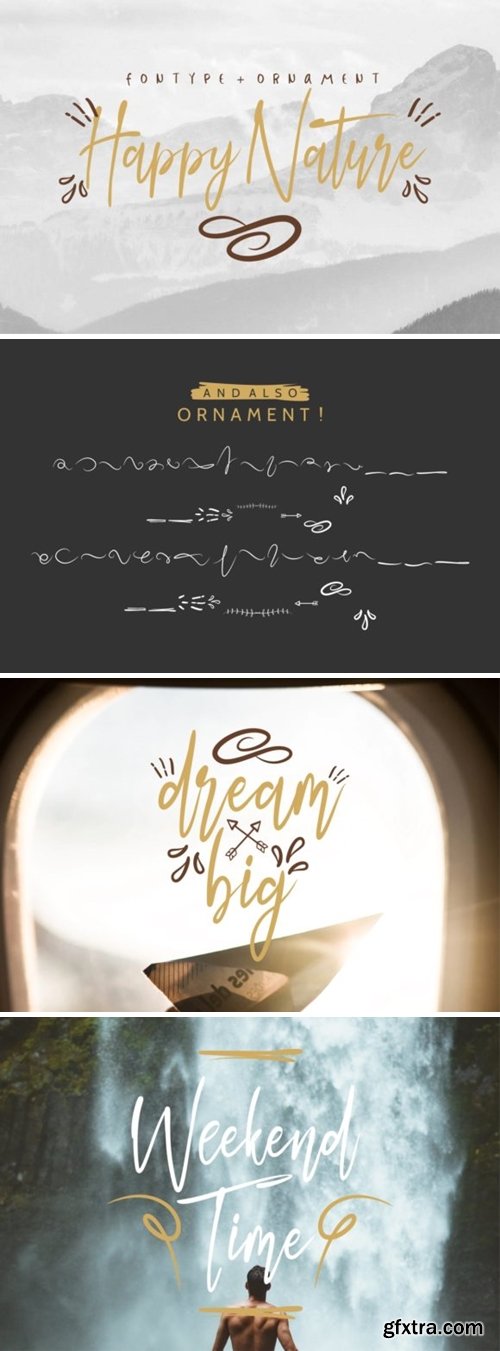 FONTYPE + ORNAMENT
Happy Nature
AND ALSO
ORNAMENT!
dream
big
Weekend
Time
gfxtra.com